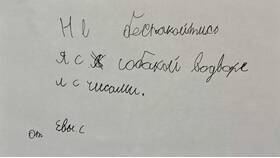 Не беспокойтись
Я с собакой водворе
и с чисами.
от Евы.с